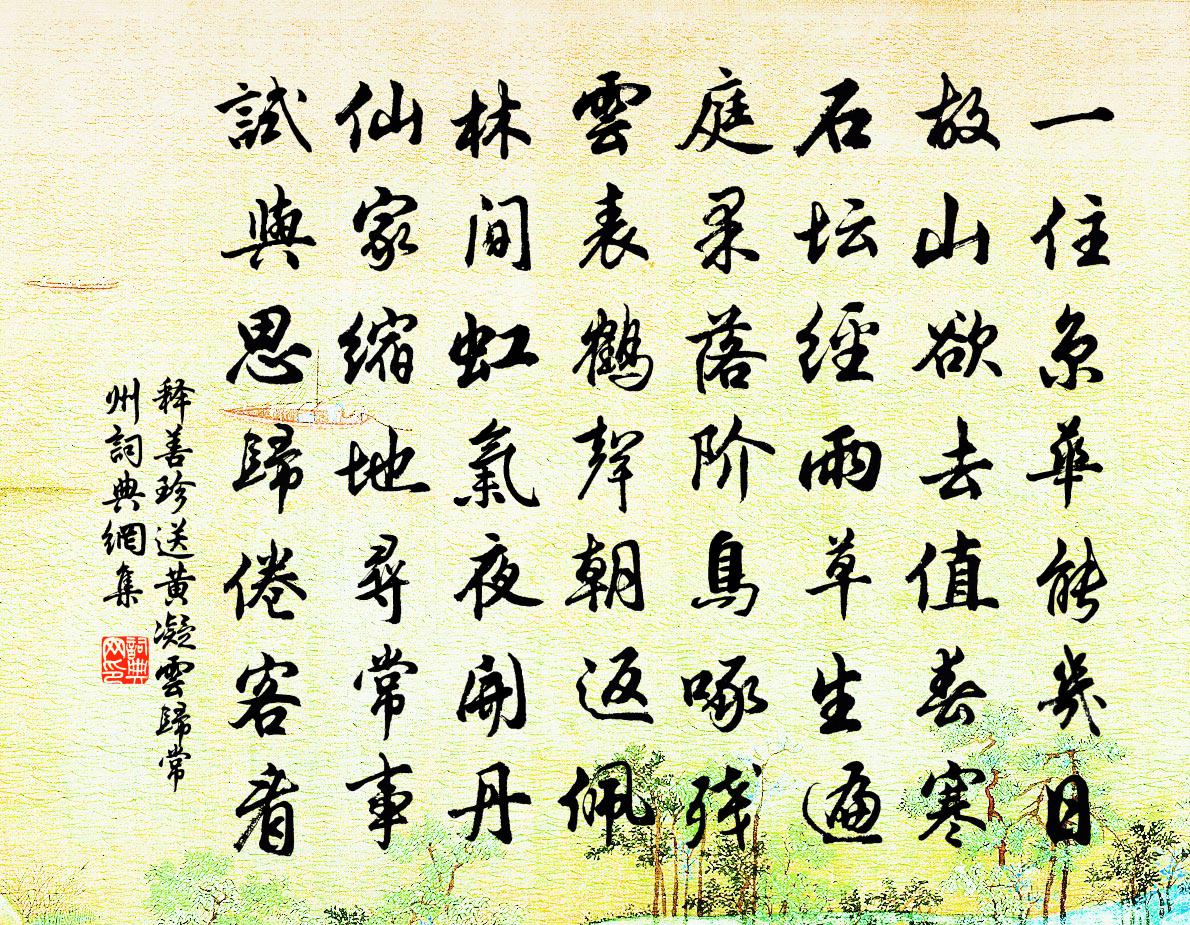 一住京華能幾日
故山欲去值春寒
石坛經雨草生遍
庭果落阶鳥啄残
雲表鶴聲朝返佩
林間虹氣夜開丹
仙家缩地尋常事
試與思歸倦客看
释善珍送黄凝雲歸常
州詞典網集
詞典
网印